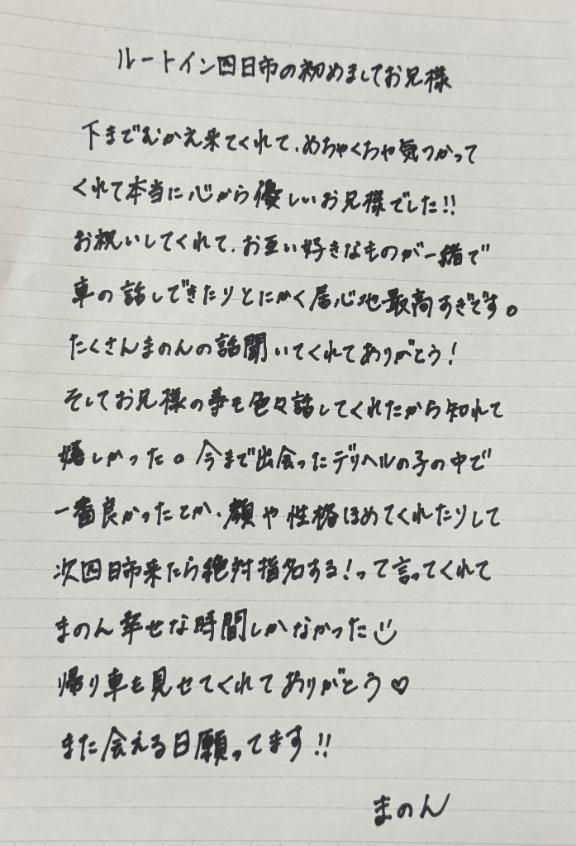 ルートイン四日市の初めましてお兄様
下までむかえ来てくれて、めちゃくちゃ気つかって
くれて本当に心から優しいお兄様でした!!
お祝いしてくれて、お互い好きなものが一緒で
車の話しできたりとにかく居心地最高すぎです。
たくさんまのんの話聞いてくれてありがとう!
そしてお兄様の事も色々話してくれたから知れて
嬉しかった。今まで出会ったデリヘルの子の中で
一番良かったとか、顔や性格ほめてくれたりして
次四日市来たら絶対指名する!って言ってくれて
まのん幸せな時間しかなかった☺
帰り車も見せてくれてありがとう♡
また会える日願ってます!!
まのん